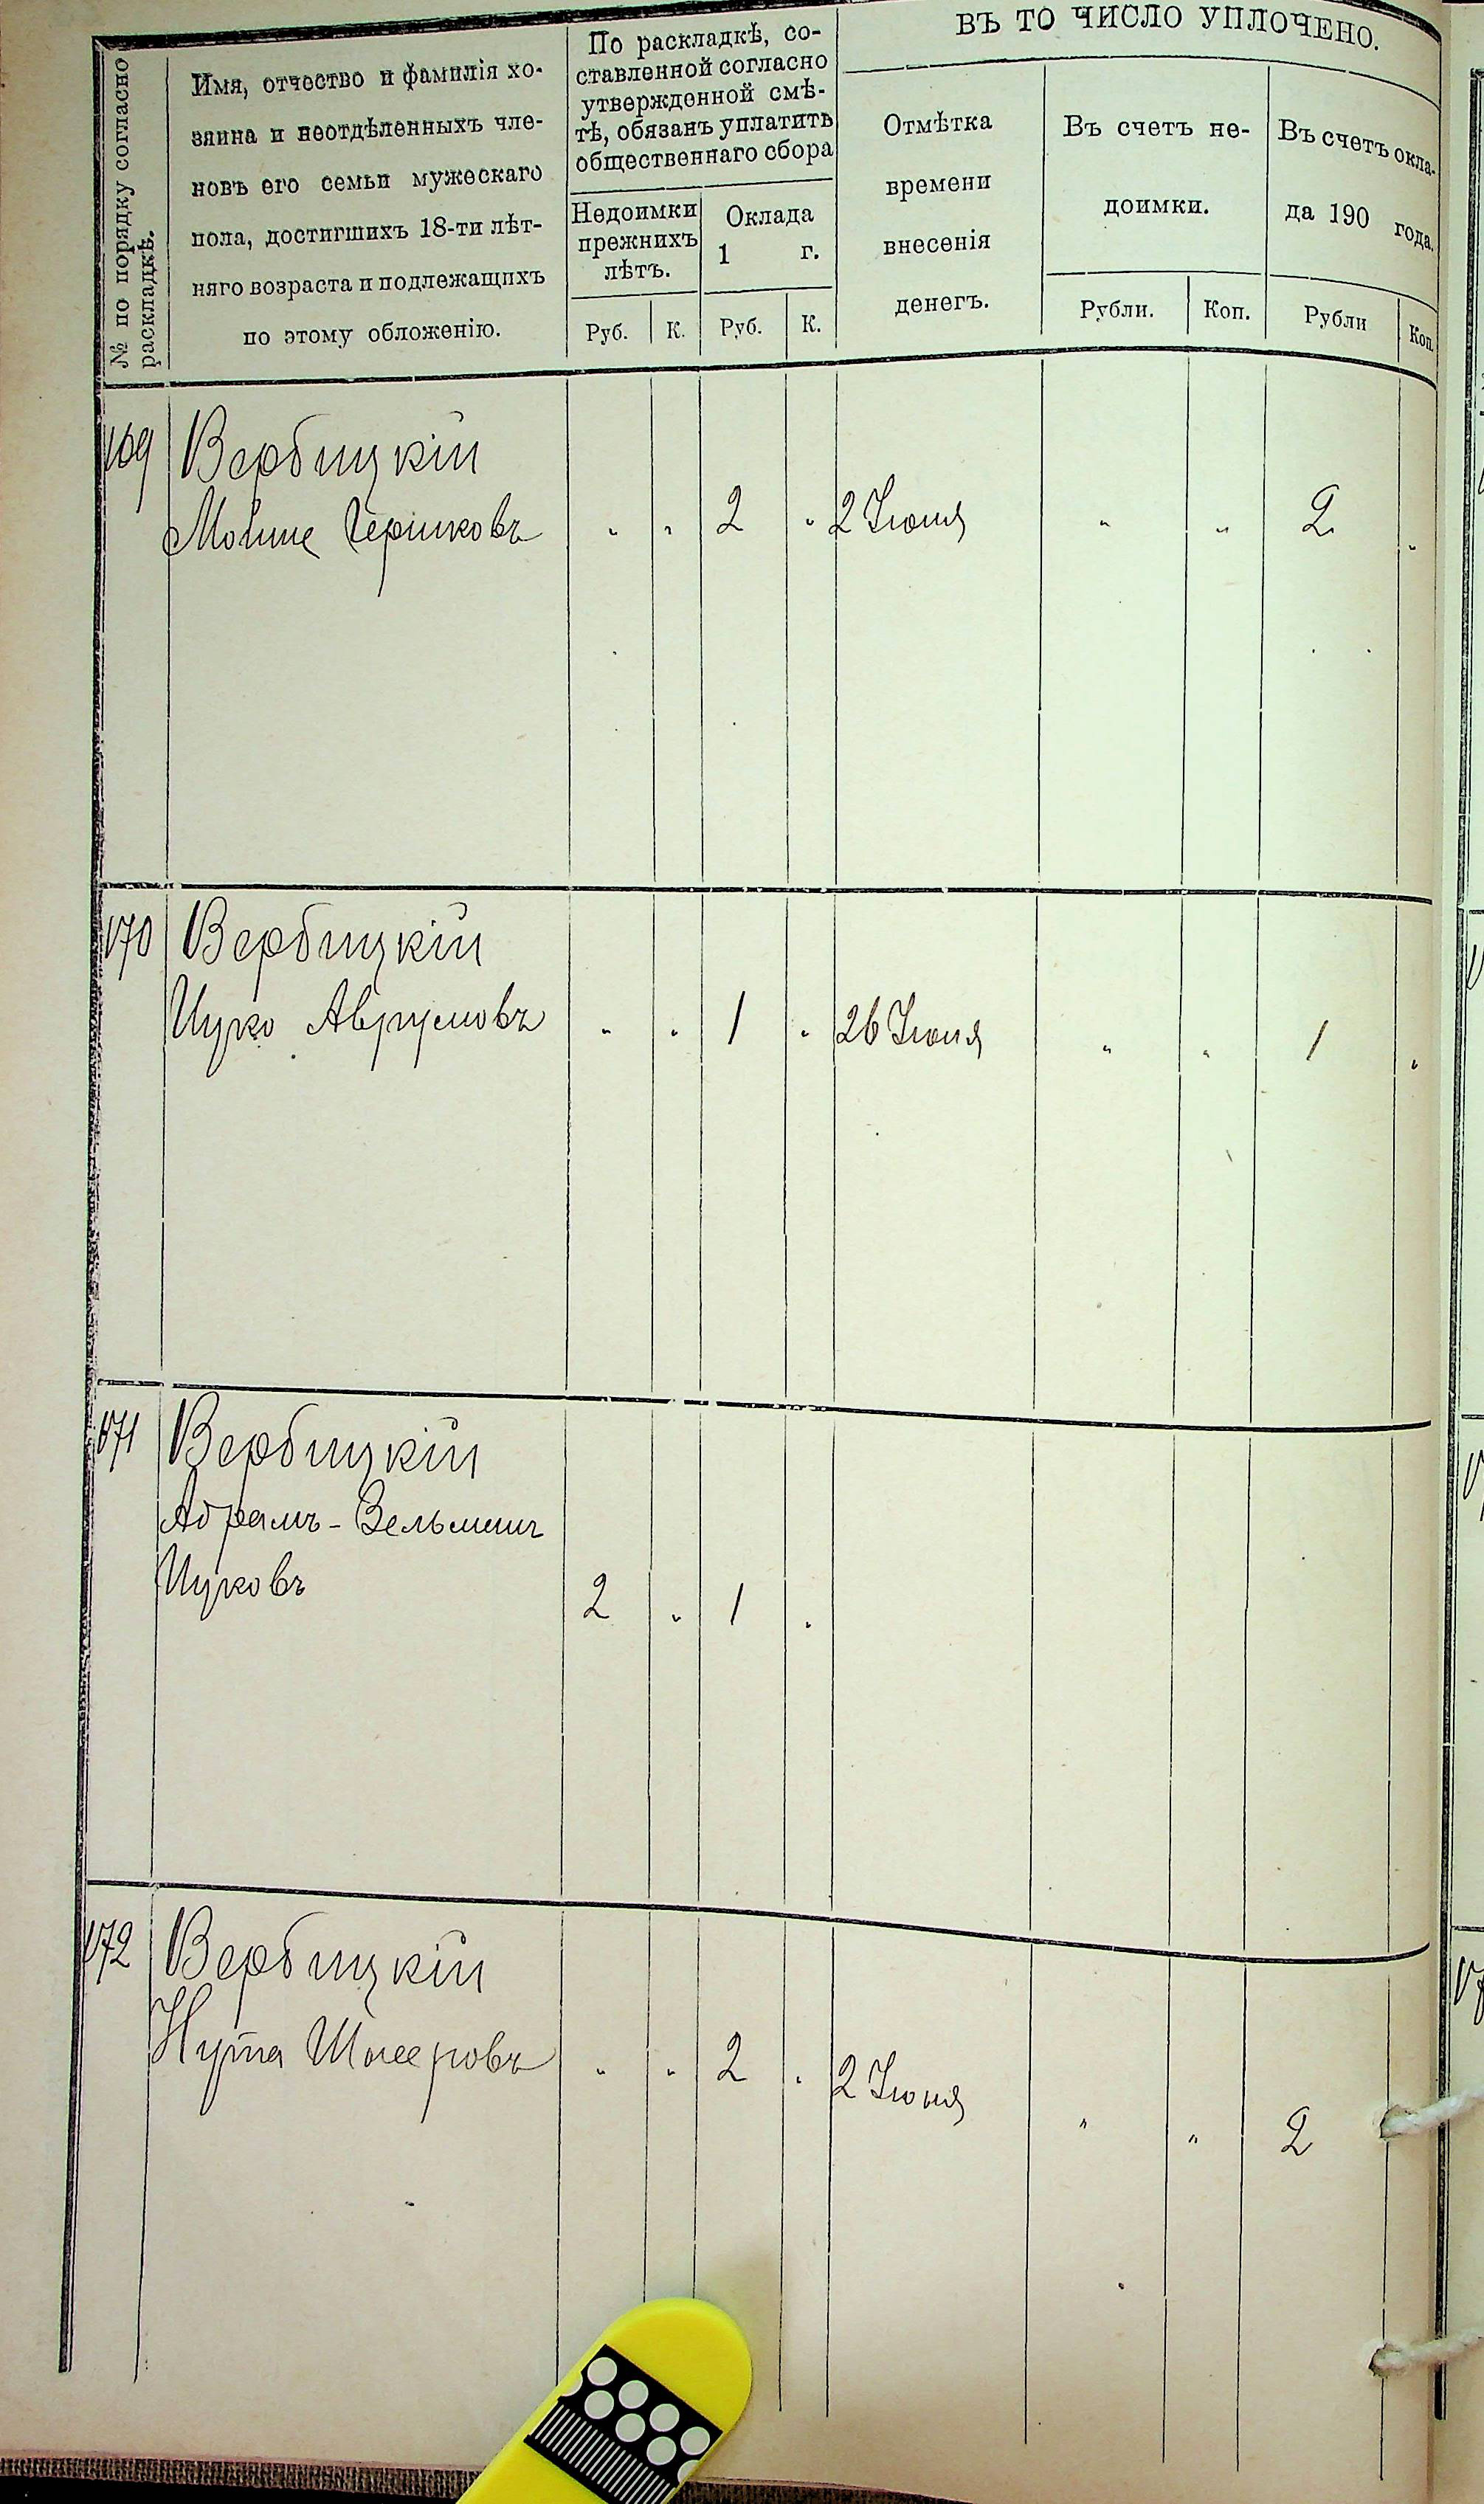 № по порядку согласно
раскладкѣ.
Имя, отчество и фамилія хо-
зяина и неотдѣленныхъ чле-
новъ его семьи мужескаго
пола, достигшихъ 18-ти лѣт-
няго возраста и подлежащихъ
по этому обложенію.
По раскладкѣ, со-
ставленной согласно
утвержденной смѣ-
тѣ, обязанъ уплатить
общественнаго сбора
Недоимки
прежнихъ
лѣтъ.
Руб. К.
Оклада
1 г.
Руб. К.
ВЪ ТО ЧИСЛО УПЛОЧЕНО.
Отмѣтка
времени
внесенія
денегъ.
Въ счетъ не-
доимки.
Рубли. Коп.
Въ счетъ окла-
да 190 года.
Рубли Коп.
169 Вербицкій
" " 2 " 2 Іюня " " 2 "
170 Вербицкій
Ицко Аврумовъ " " 1 " 26 Іюня " " 1 "
171 Вербицкій
Абрамъ-Зельманъ
Ицковъ 2 " 1 "
172 Вербицкій
Нута " " 2 " 2 Іюня " " 2